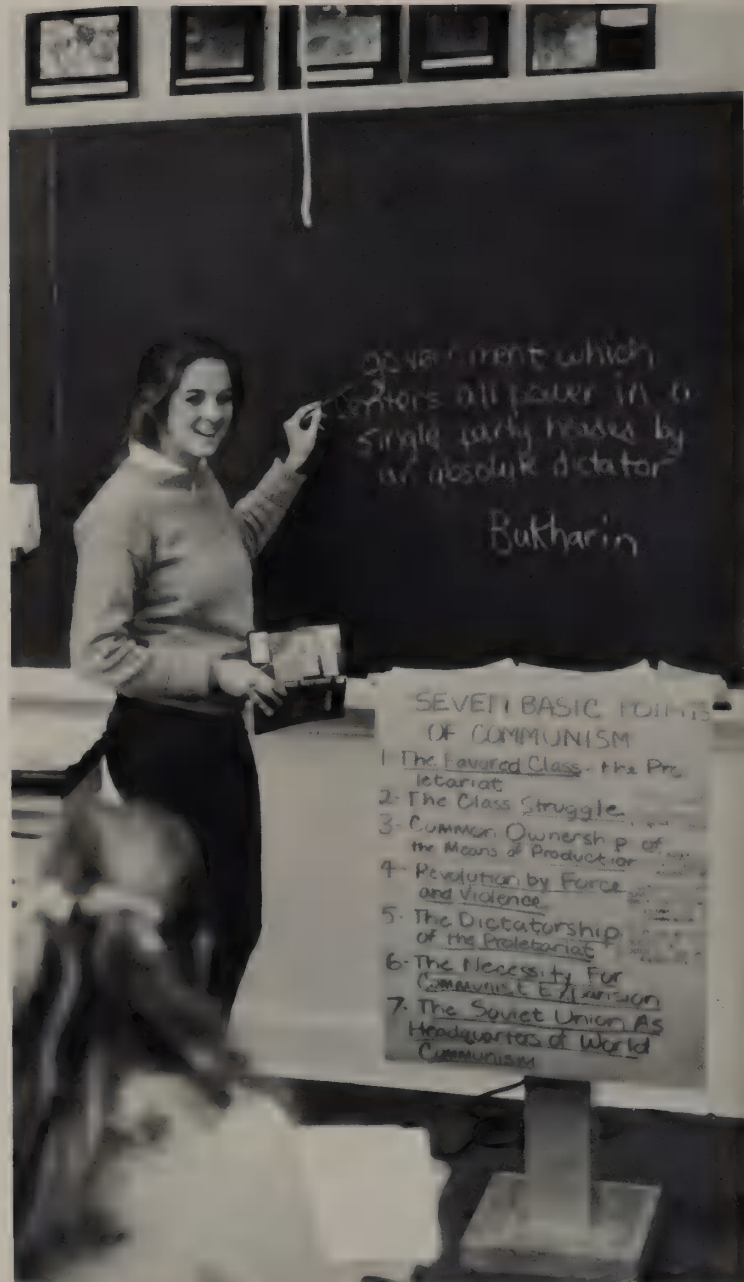 government which
centers all power in a
single party headed by
an absolute dictator
Bukharin
SEVEN BASIC POINTS
OF COMMUNISM
1 The Favored Class - the Pro
letariat
2- The Class Struggle
3- Common Ownership of
the Means of Production
4- Revolution by Force
and Violence
5- The Dictatorship
of the Proletariat
6- The Necessity For
Communist Expansion
7- The Soviet Union As
Headquarters of World
Communism